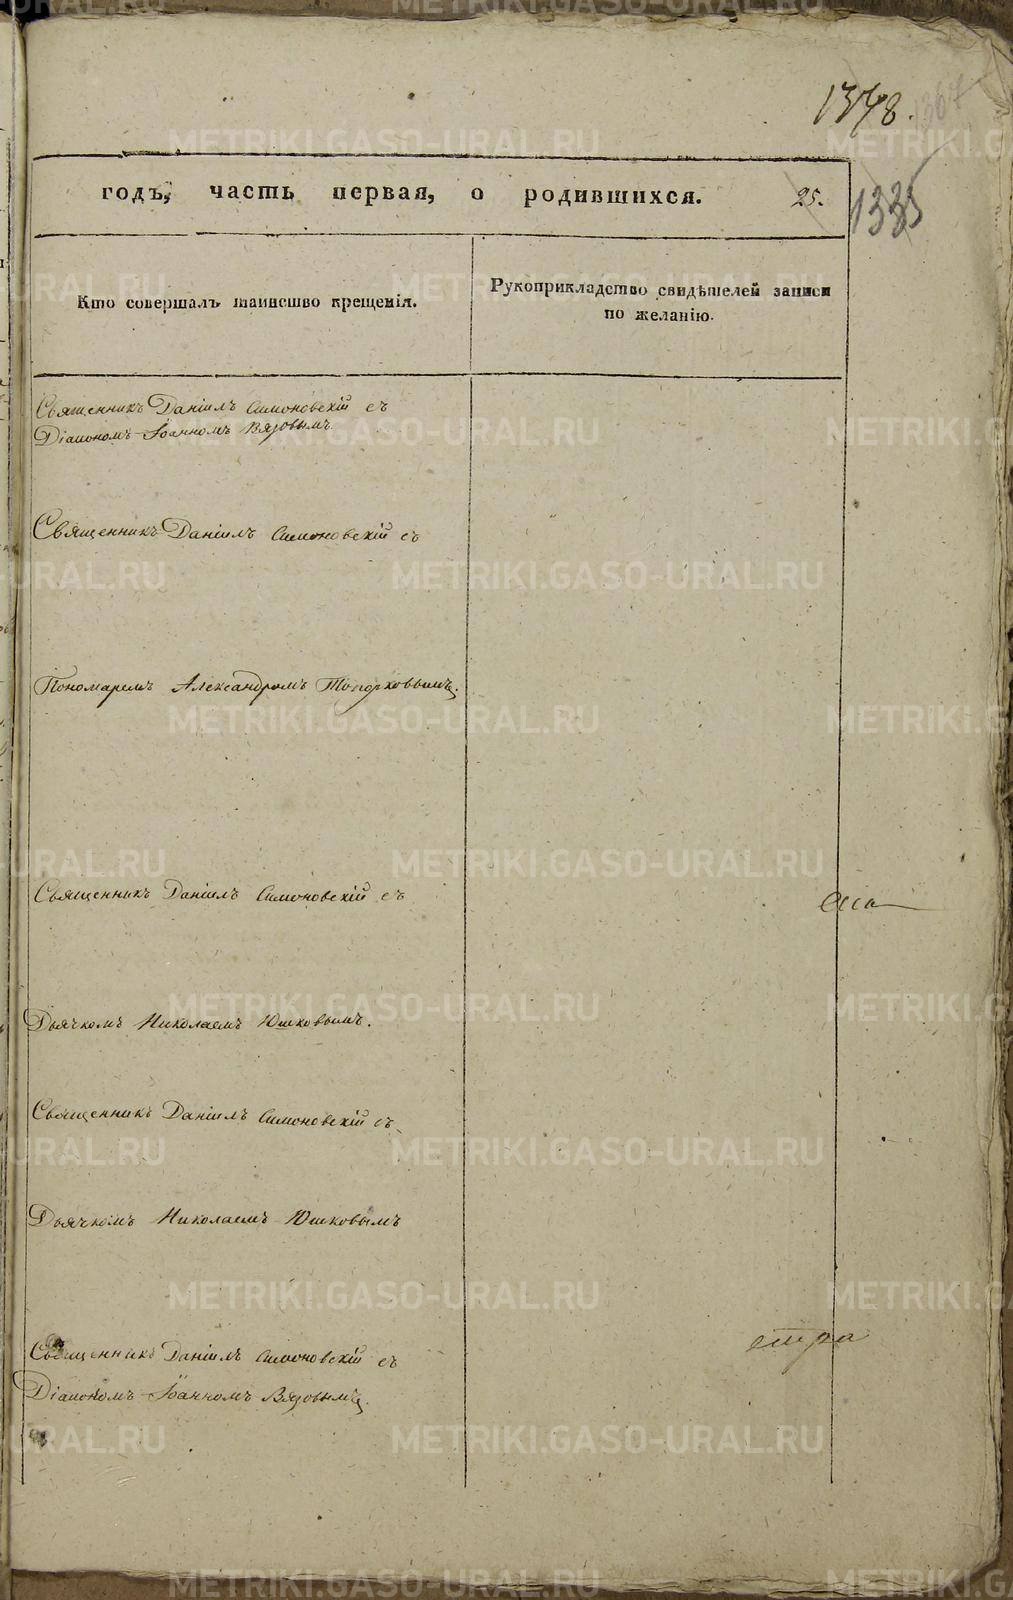 1378. 1367
годъ, часть первая, о родившихся. 25. 1335
Кто совершалъ таинство крещенія.
Рукоприкладство свидѣтелей записи
по желанію.
Священникъ Даніилъ Симоновскій съ
Діакономъ Іоанномъ Вязовымъ
Священникъ Даніилъ Симоновскій съ
Пономаремъ Александромъ Топорковымъ.
Священникъ Даніилъ Симоновскій съ
Дьячкомъ Николаемъ Юшковымъ.
Священникъ Даніилъ Симоновскій съ
Дьячкомъ Николаемъ Юшковымъ
Священникъ Даніилъ Симоновскій съ
Діакономъ Іоанномъ Вязовымъ.
METRIKI.GASO-URAL.RU